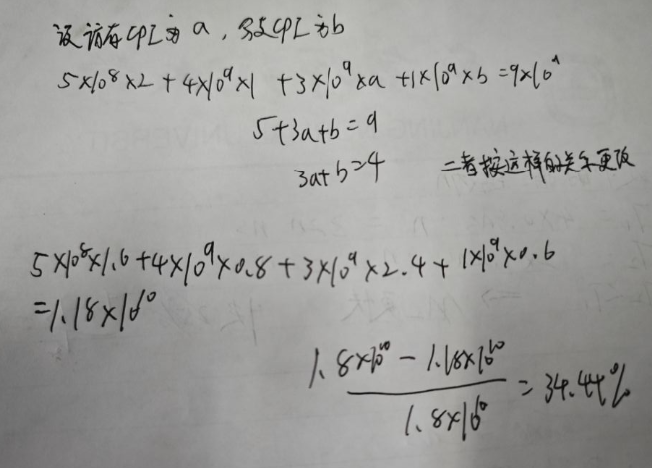 设访存CPI为a,分支CPI为b
5×10⁸×2+4×10⁹×1+3×10⁹×a+1×10⁹×b=9×10⁹
5+3a+b=9
3a+b=4 二者按这样的关系更改
5×10⁸×1.6+4×10⁹×0.8+3×10⁹×2.4+1×10⁹×0.6
=1.18×10¹⁰
(1.8×10¹⁰-1.18×10¹⁰)/(1.8×10¹⁰)=34.44%